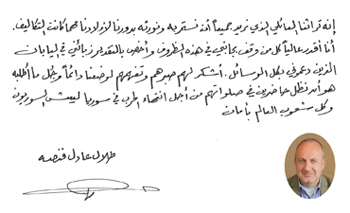 إنه تراثنا العائلي الذي نريد جميعاً أن نسترجعه ونورثه بدورنا لأولادنا مهما كانت التكاليف.
أنا أقدر عالياً كل من وقف بجانبي في هذه الظروف وأخص بالتقدير زبائني في اليابان
الذين دعموني بكل الوسائل. أشكر لهم صبرهم وتفهمهم لوضعنا دائماً وكل ما أطلبه
هو أن نظل حاضرين في صلواتهم من أجل انتهاء الحرب في سوريا ليعيش السوريون
وكل شعوب العالم بأمان
طلال عادل فنصة